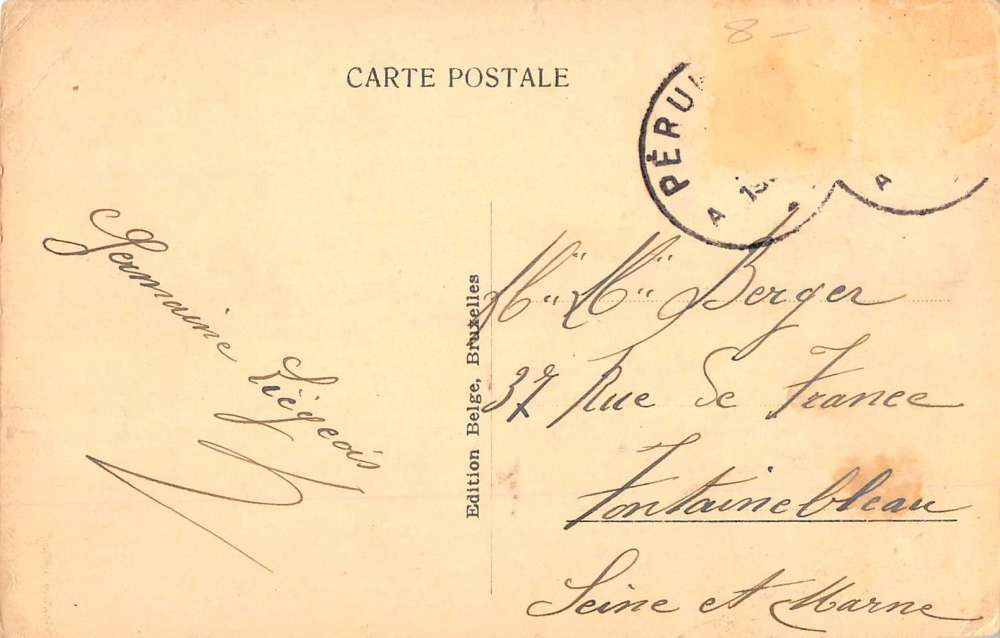 8 -
CARTE POSTALE
PÉRU
A 19
A
Germaine Liégeois
Edition Belge, Bruxelles
Mlle Mlle Berger
37 Rue de France
Fontainebleau
Seine et Marne